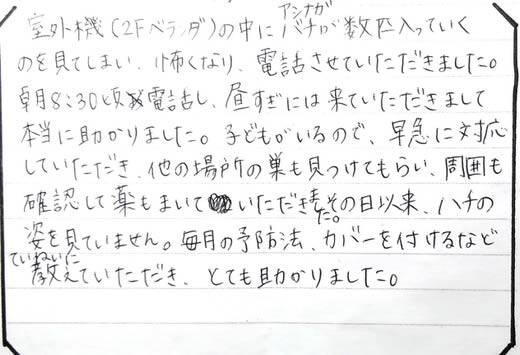 室外機(2Fベランダ)の中にアシナガバチが数匹入っていく
のを見てしまい、怖くなり、電話させていただきました。
朝8:30頃電話し、昼すぎには来ていただきまして
本当に助かりました。子どもがいるので、早急に対応
していただき、他の場所の巣も見つけてもらい、周囲も
確認して薬もまいていただきました。その日以来、ハチの
姿を見ていません。毎月の予防法、カバーを付けるなど
ていねいに教えていただき、とても助かりました。